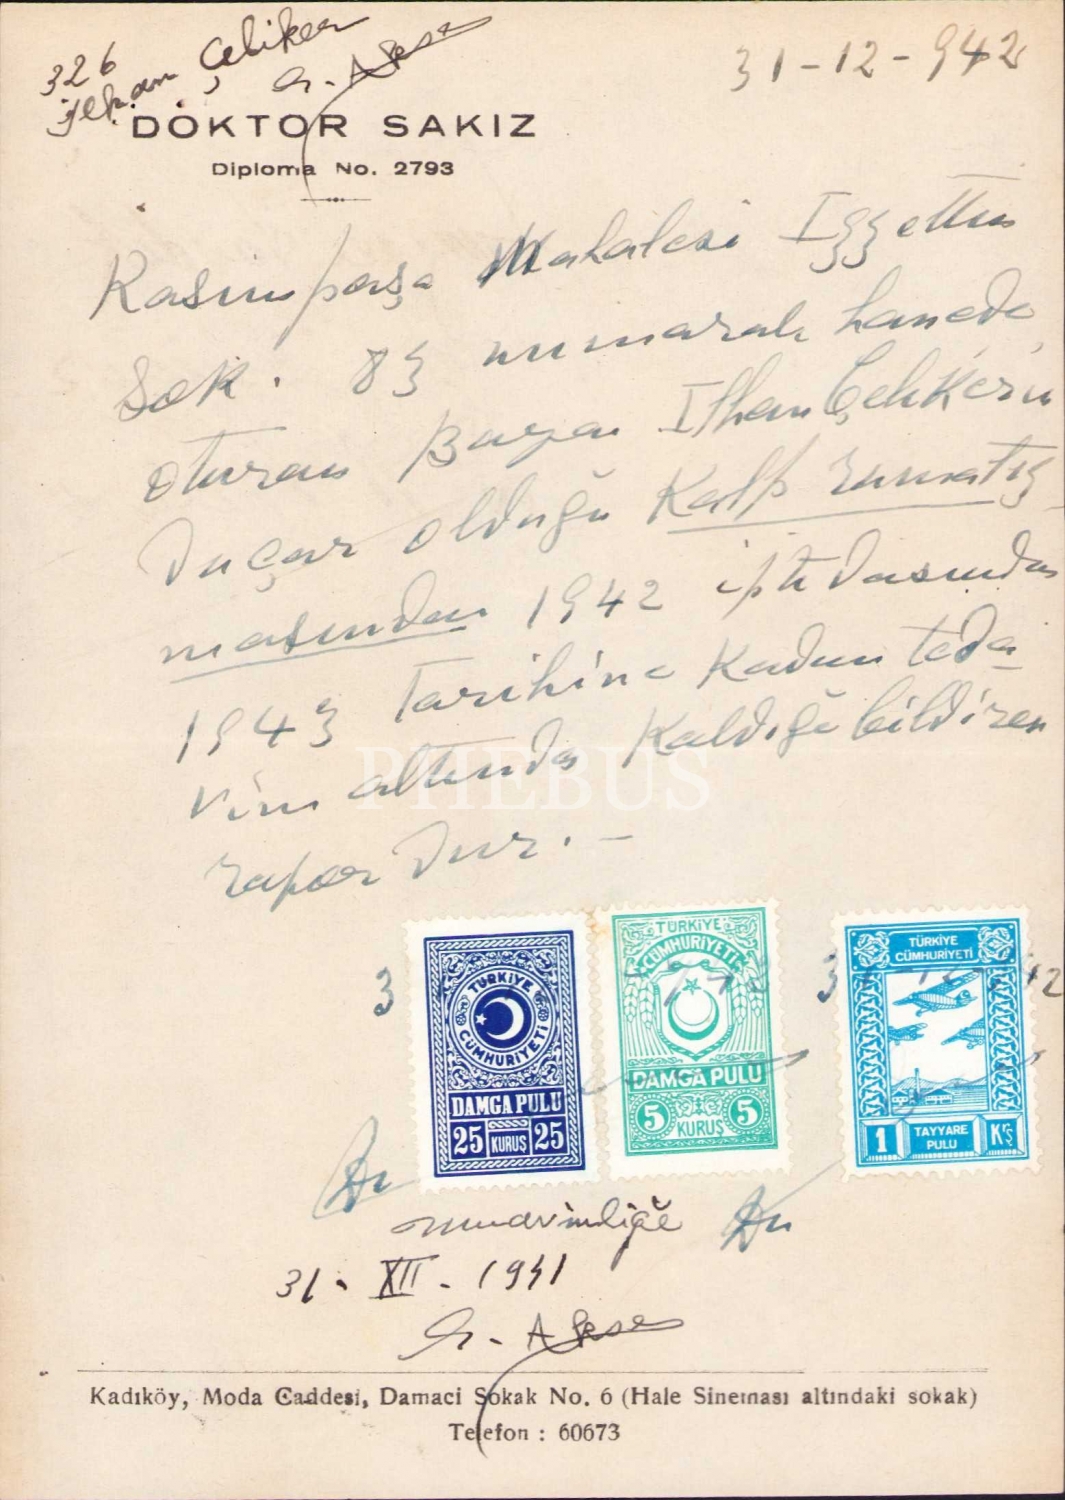 326
İlhan Çeliker
31-12-942
DOKTOR SAKIZ
Diploma No. 2793
Kasımpaşa Mahalesi Izzettin
Sok. 83 numaralı hanede
oturan Bayan Ilhan Çelikerin
Duçar olduğu Kalp rumatiz-
masından 1942 iptidasından
1943 tarihine Kadar teda-
vim altında Kaldığı bildiren
rapordur.—
TÜRKİYE
CÜMHURİYETİ
DAMGA PULU
25 KURUŞ 25
TÜRKİYE
CÜMHURİYETİ
DAMGA PULU
5 KURUŞ 5
TÜRKİYE
CÜMHURİYETİ
1 TAYYARE PULU KŞ
PHEBUS
muavinliğe
31. XII. 1941
Kadıköy, Moda Caddesi, Damaci Sokak No. 6 (Hale Sineması altındaki sokak)
Telefon : 60673